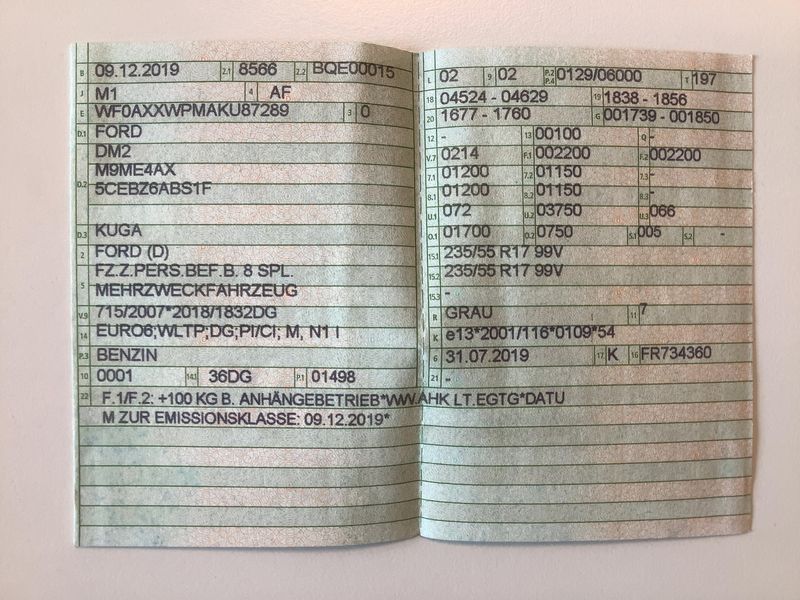 B 09.12.2019 2.1 8566 2.2 BQE00015
J M1 4 AF
E WF0AXXWPMAKU87289 3 0
D.1 FORD
DM2
D.2 M9ME4AX
5CEBZ6ABS1F
D.3 KUGA
2 FORD (D)
5 FZ.Z.PERS.BEF.B. 8 SPL.
MEHRZWECKFAHRZEUG
V.9 715/2007*2018/1832DG
14 EURO6;WLTP;DG;PI/CI; M, N1 I
P.3 BENZIN
10 0001 14.1 36DG P.1 01498
L 02 9 02 P.2 P.4 0129/06000 T 197
18 04524 - 04629 19 1838 - 1856
20 1677 - 1760 G 001739 - 001850
12 - 13 00100 Q -
V.7 0214 F.1 002200 F.2 002200
7.1 01200 7.2 01150 7.3 -
8.1 01200 8.2 01150 8.3 -
U.1 072 U.2 03750 U.3 066
O.1 01700 O.2 0750 S.1 005 S.2 -
15.1 235/55 R17 99V
15.2 235/55 R17 99V
15.3 -
R GRAU 11 7
K e13*2001/116*0109*54
6 31.07.2019 17 K 16 FR734360
21 -
22 F.1/F.2: +100 KG B. ANHÄNGEBETRIEB*WW.AHK LT.EGTG*DATU
M ZUR EMISSIONSKLASSE: 09.12.2019*